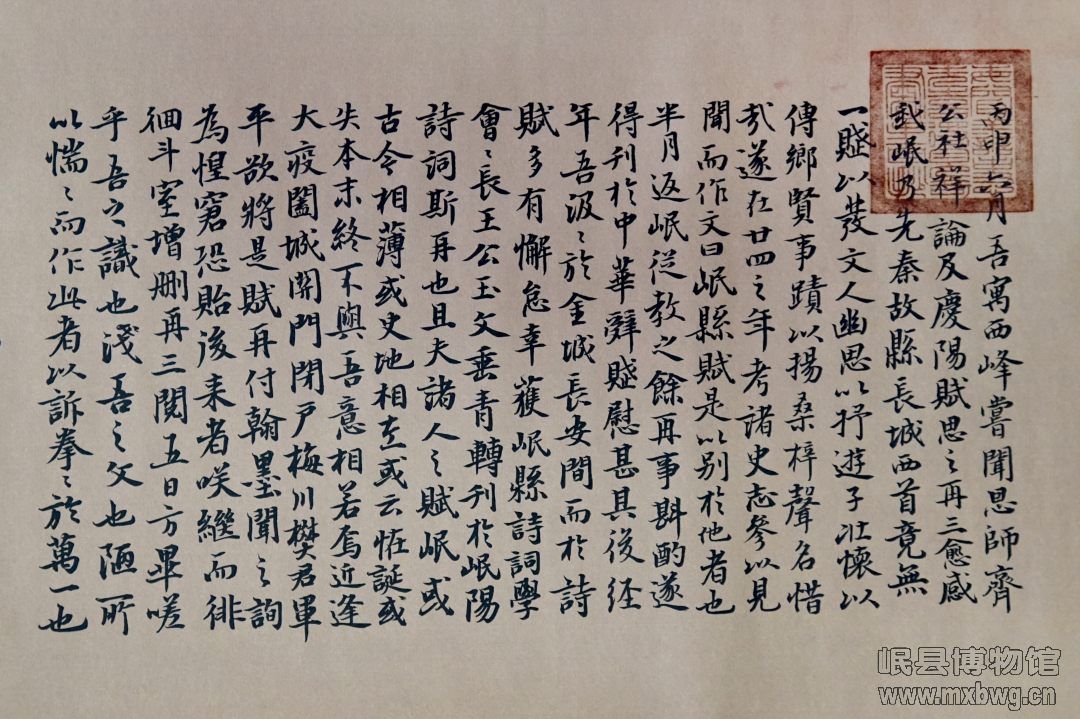 丙申六月吾寓西峰嘗聞恩師齊
公社祥論及慶陽賦思之再三愈感
我岷乃先秦故縣長城西首竟無
一賦以發文人幽思以抒遊子壯懷以
傳鄉賢事蹟以揚桑梓聲名惜
哉遂在廿四之年考諸史志參以見
聞而作文曰岷縣賦是以别於他者也
半月返岷從教之餘再事斟酌遂
得刊於中華辭賦慰甚其後經
年吾汲〻於金城長安間而於詩
賦多有懈怠幸獲岷縣詩詞學
會〻長王公玉文垂青轉刊於岷陽
詩詞斯再也且夫諸人之賦岷或
古今相薄或史地相左或云恠誕或
失本末終不與吾意相若焉近逢
大疫闔城閉門閉戸梅川樊君軍
平欲將是賦再付翰墨聞之詢
為惶窘恐貽後来者咲繼而徘
徊斗室增删再三閱五日方畢嗟
乎吾之識也淺吾之文也陋所
以惴〻而作此者以訴拳〻於萬一也
岷县博物馆
www.mxbwg.cn